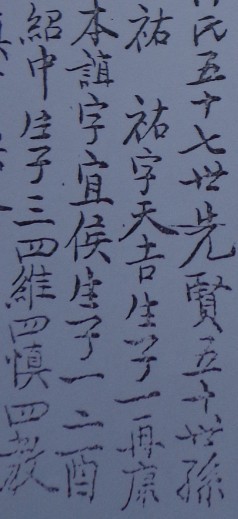 氏五十七世先賢五十世孫
祐 祐字天吉生子一再康
本誼字宜侯生子一二酉
紹中生子三四維四慎四教